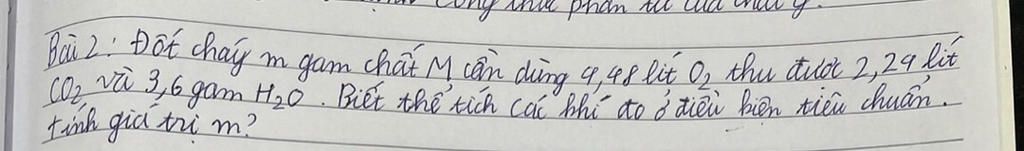 công thức phân tử của chất y.
Bài 2: Đốt cháy m gam chất M cần dùng 4,48 lít O2 thu được 2,24 lít
CO2 và 3,6 gam H2O. Biết thể tích các khí đo ở điều kiện tiêu chuẩn.
tính giá trị m?